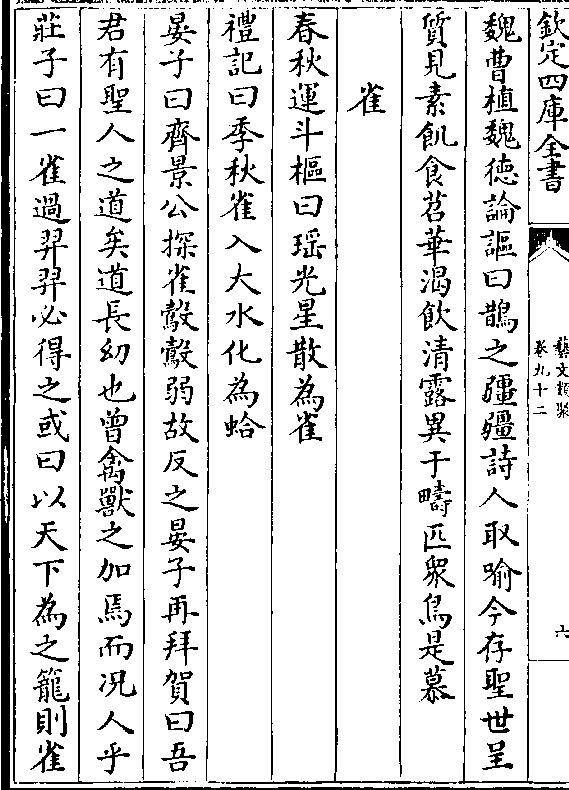 欽定四庫全書
藝文類聚
卷九十二
六
魏曹植魏徳論謳曰鵲之彊彊詩人取喻今存聖世呈
質見素飢食苕華渴飲清露異于疇匹衆鳥是慕
雀
春秋運斗樞曰瑶光星散為雀
禮記曰季秋雀入大水化為蛤
晏子曰齊景公探雀鷇鷇弱故反之晏子再拜賀曰吾
君有聖人之道矣道長幼也曾禽獸之加焉而况人乎
莊子曰一雀過羿羿必得之或曰以天下為之籠則雀